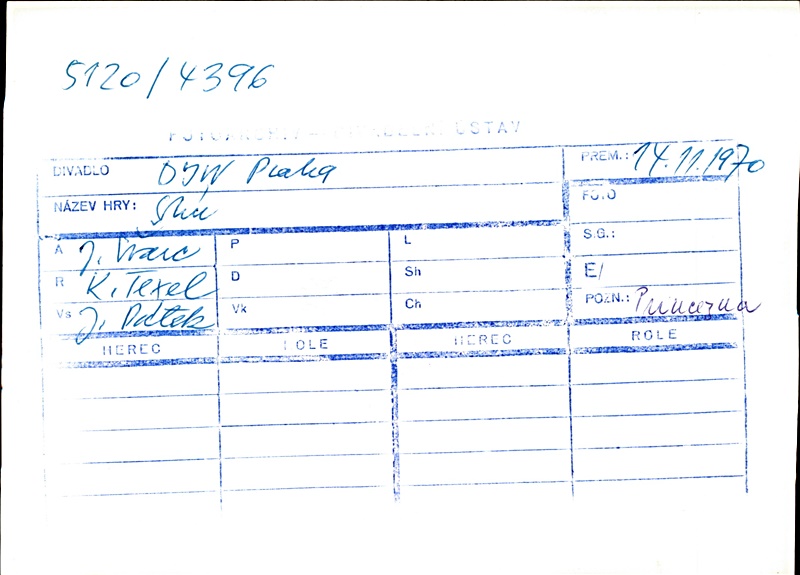 5120/4396
FOTOARCHIV - DIVADELNÍ ÚSTAV
DIVADLO DJW Praha PREM.: 14.11.1970
NÁZEV HRY: Stín FOTO
A J. Švarc P L S.G.:
R K. Texel D Sh E/
Vs J. Pátek Vk Ch POZN.: Princezna
HEREC ROLE HEREC ROLE